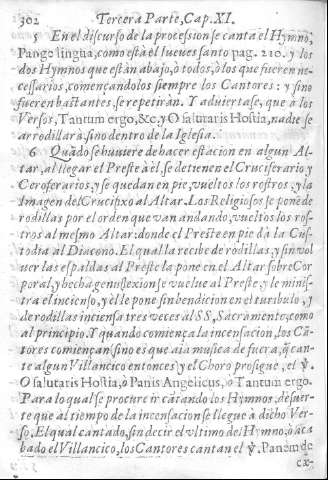 302 Tercera Parte, Cap. XI.
5 En el discurso de la procession se canta el Hymno,
Pange lingua, como està el Iueues santo pag. 210. y los
dos Hymnos que estàn abajo, ò todos, ò los que fueren ne-
cessarios, començandolos siempre los Cantores: y sino
fueren bastantes se repetiràn. Y aduiertase, que à los
Versos, Tantum ergo, &c. y O salutaris Hostia, nadie se
arrodillarà, sino dentro de la Iglesia.
6 Quãdo se huuiere de hacer estacion en algun Al-
tar, al llegar el Preste à èl, se detienen el Cruciferario y
Ceroferarios, y se quedan en pie, vueltos los rostros, y la
Imagen del Crucifixo al Altar. Los Religiosos se ponẽ de
rodillas por el orden que van andando, vueltos los ros-
tros al mesmo Altar: donde el Preste en pie dà la Cus-
todia al Diacono. El qual la recibe de rodillas, y sin vol
uer las espaldas al Preste la pone en el Altar sobre Cor
poral, y hecha genuflexion se vuelue al Preste, y le minis-
tra el incienso, y èl le pone sin bendicion en el turibulo, y
de rodillas inciensa tres veces al SS, Sacramento, como
al principio. Y quando comiença la incensacion, los Cã-
tores comiençan (sino es que aia musica de fuera, q̃ can-
te algun Villancico entonces) y el Choro prosigue, el ℣.
O salutaris Hostia, ò Panis Angelicus, ò Tantum ergo.
Para lo qual se procure ir cãtando los Hymnos, de suer-
te que al tiempo de la incensacion se llegue à dicho Ver-
so. El qual cantado, sin decir el vltimo del Hymno, ò aca
bado el Villancico, los Cantores cantan el ℣. Panem de
cœ-